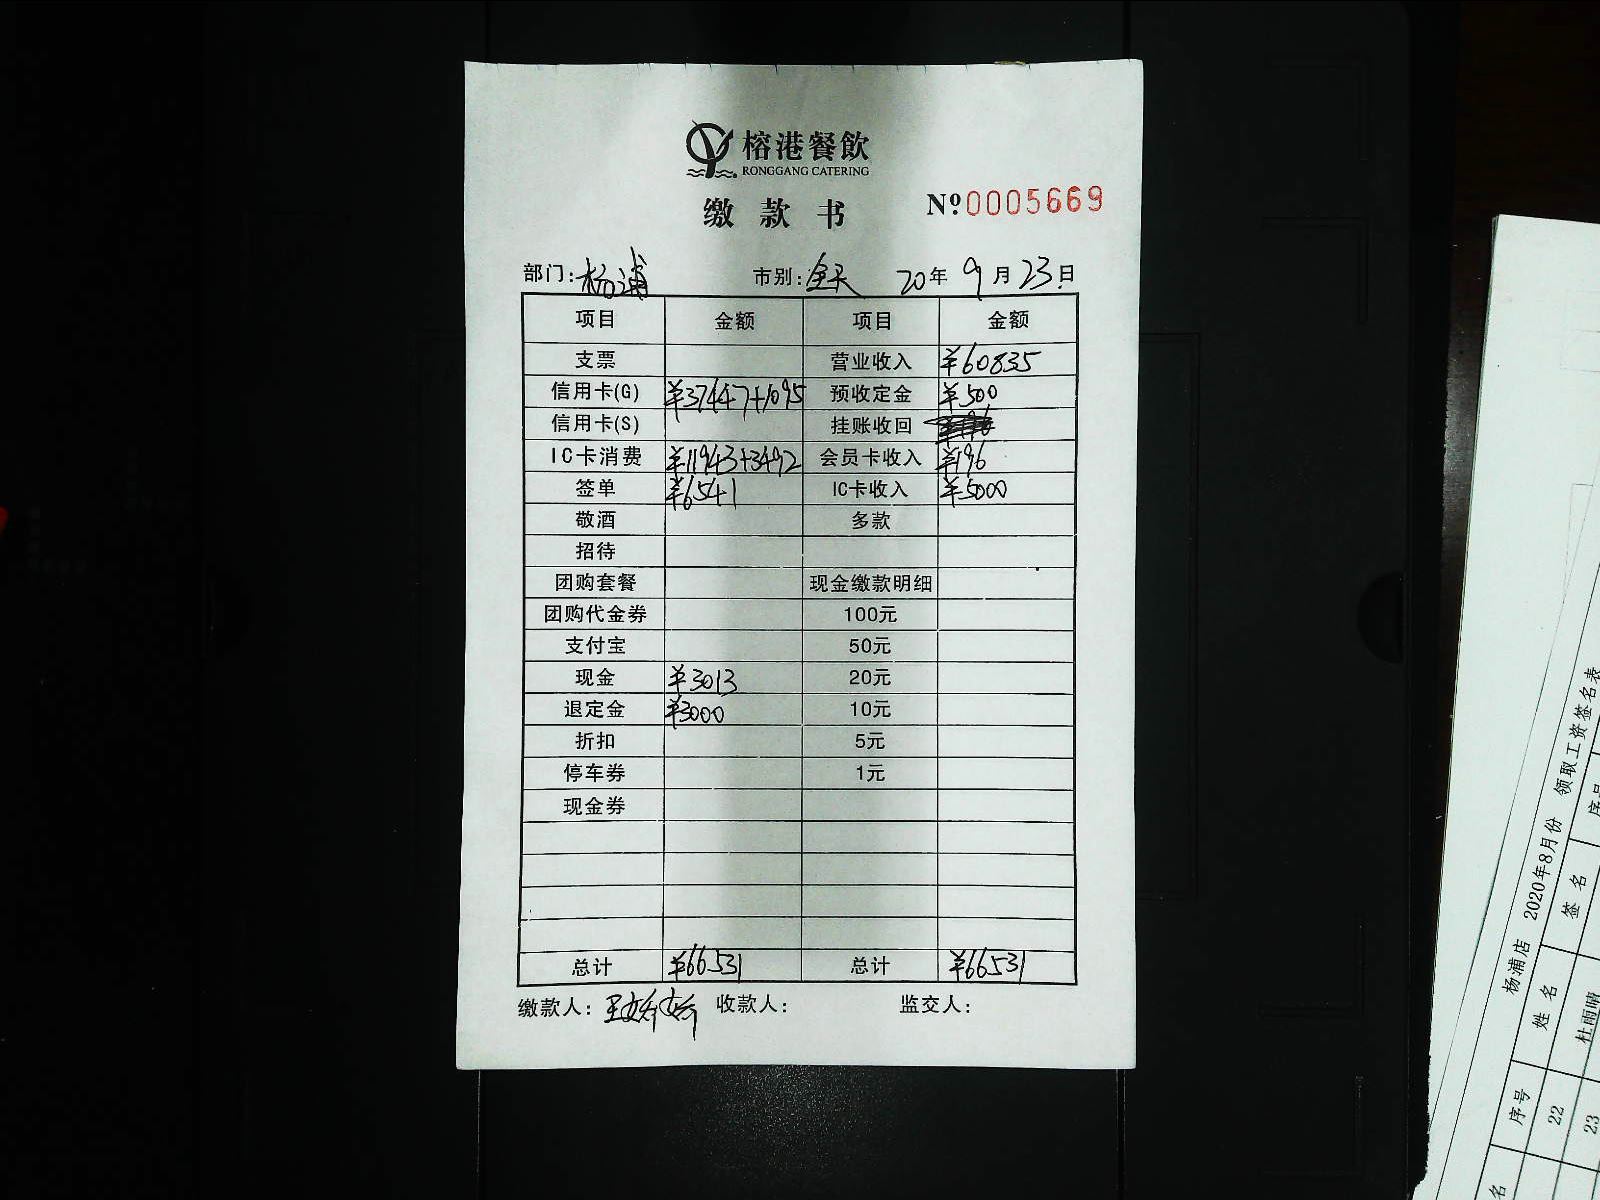 榕港餐飲
RONGGANG CATERING
缴款书
№0005669
部门:杨浦 市别:全天 20年9月23日
项目 金额 项目 金额
支票 营业收入 ¥60835
信用卡(G) ¥37447+1095 预收定金 ¥500
信用卡(S) 挂账收回
IC卡消费 ¥11943+3492 会员卡收入 ¥196
签单 ¥6541 IC卡收入 ¥5000
敬酒 多款
招待
团购套餐 现金缴款明细
团购代金券 100元
支付宝 50元
现金 ¥3013 20元
退定金 ¥3000 10元
折扣 5元
停车券 1元
现金券
总计 ¥66531 总计 ¥66531
缴款人:王娇娇 收款人: 监交人:
杨浦店 2020年8月份 领取工资签名表
序号 姓名 签名 序号
22 杜雨晴
23
名